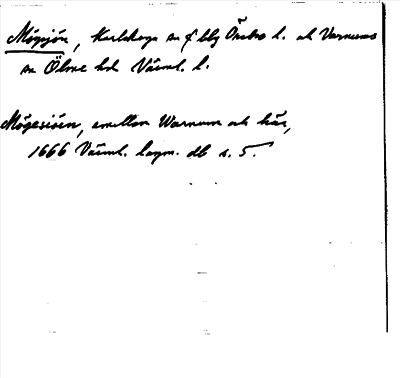 Mögsjön, Karlskoga sn o blg Örebro l. och Varnums
sn Ölme hd Värml. l.
Mögesiön, emellan Warnum och här,
1666 Värml. lagm. db s. 5.